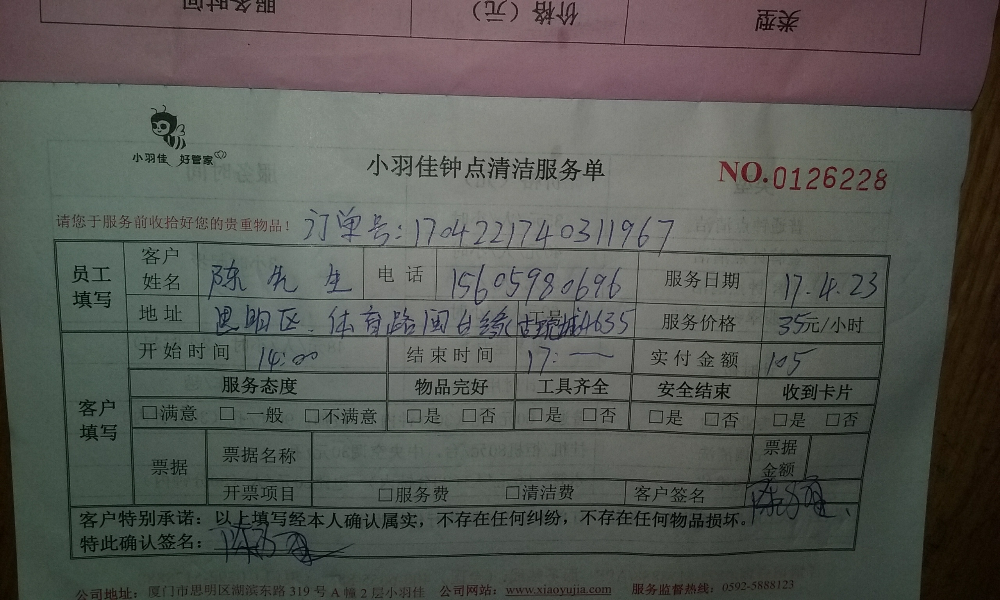 服务时间 价格（元） 类型
小羽佳 好管家
小羽佳钟点清洁服务单
NO.0126228
请您于服务前收拾好您的贵重物品！ 订单号：1704221740311967
员工填写 客户姓名 陈先生 电话 15605980696 服务日期 17.4.23
地址 思明区.体育路闽台缘 服务价格 35元/小时
客户填写 开始时间 14:00 结束时间 17:— 实付金额 105
服务态度 物品完好 工具齐全 安全结束 收到卡片
□满意 □一般 □不满意 □是 □否 □是 □否 □是 □否 □是 □否
票据 票据名称 票据金额
开票项目 □服务费 □清洁费 客户签名
客户特别承诺：以上填写经本人确认属实，不存在任何纠纷，不存在任何物品损坏。
特此确认签名：
公司地址：厦门市思明区湖滨东路 319 号 A 幢 2 层小羽佳 公司网站：www.xiaoyujia.com 服务监督热线：0592-5888123